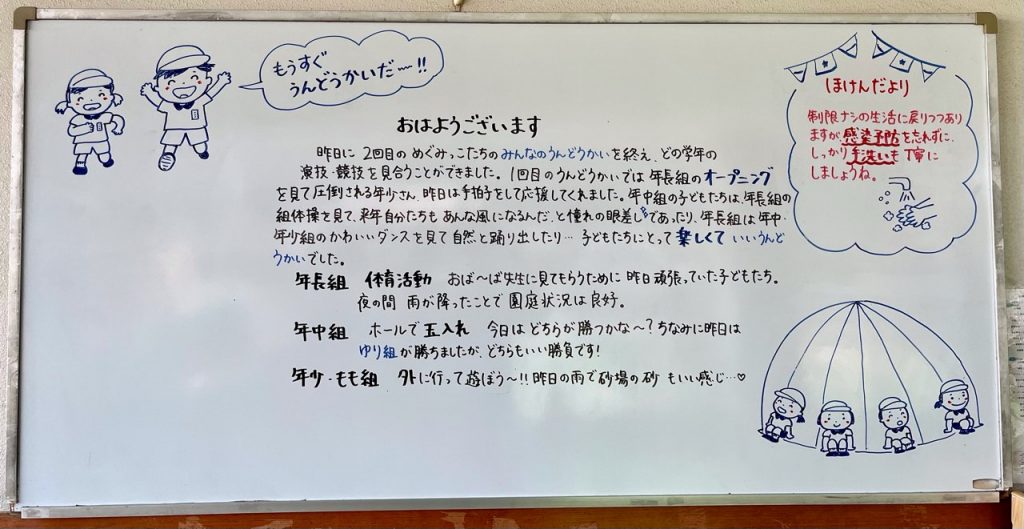 もうすぐ
うんどうかいだ〜!!
おはようございます
昨日に 2回目の めぐみっこたちの みんなのうんどうかいを終え、どの学年の
演技・競技を見合うことができました。1回目のうんどうかいでは 年長組のオープニング
を見て圧倒される年少さん、昨日は手拍子をして応援してくれました。年中組の子どもたちは、年長組の
組体操を見て、来年自分たちも あんな風になるんだ、と憧れの眼差しであったり、年長組は 年中・
年少組のかわいいダンスを見て自然と踊り出したり… 子どもたちにとって 楽しくて いいうんど
うかいでした。
年長組 体育活動 おば〜ば先生に見てもらうために 昨日頑張っていた子どもたち。
夜の間 雨が降ったことで 園庭状況は良好。
年中組 ホールで玉入れ 今日は どちらが勝つかな〜?ちなみに昨日は
ゆり組が勝ちましたが、どちらもいい勝負です!
年少・もも組 外に行って遊ぼう〜!!昨日の雨で砂場の砂 もいい感じ…♡
ほけんだより
制限ナシの生活に戻りつつあり
ますが感染予防を忘れずに、
しっかり手洗いも丁寧に
しましょうね。